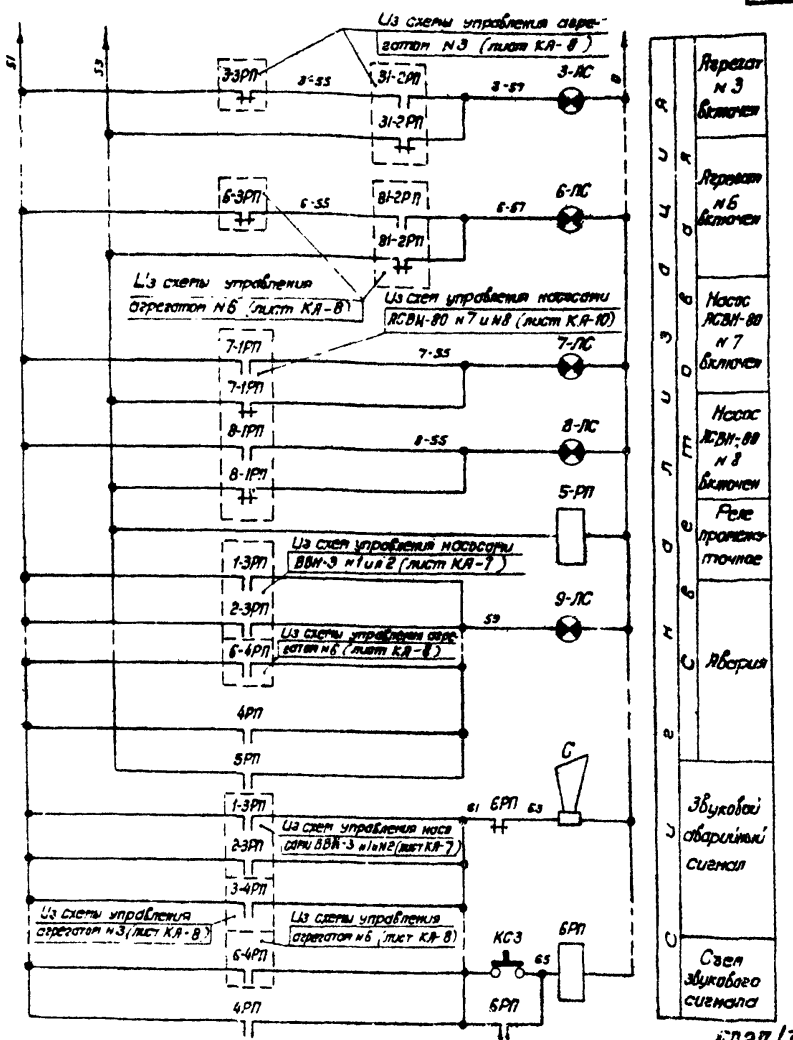 Из схемы управления агре-
гатом N3 (лист КА-8)
51
53
0
3-3РП
3-55
31-2РП
3-57
3-ЛС
31-2РП
6-3РП
6-55
81-2РП
6-67
6-ЛС
81-2РП
Из схемы управления
агрегатом N6 (лист КА-8)
Из схем управления насосами
АСВН-80 N7 и N8 (лист КА-10)
7-1РП
7-55
7-ЛС
7-1РП
8-1РП
8-55
8-ЛС
8-1РП
5-РП
Из схем управления насосами
ВВН-3 N1 и N2 (лист КА-7)
1-3РП
2-3РП
59
9-ЛС
Из схемы управления агре-
гатом N6 (лист КА-8)
6-4РП
4РП
5РП
С
1-3РП
61
6РП
63
Из схем управления насо
сами ВВН-3 N1 и N2 (лист КА-7)
2-3РП
3-4РП
Из схемы управления
агрегатом N3 (лист КА-8)
Из схемы управления
агрегатом N6 (лист КА-8)
6-4РП
КСЗ
65
6РП
4РП
6РП
Сигнализация
Световая
Агрегат
N 3
включен
Агрегат
N 6
включен
Насос
АСВН-80
N 7
включен
Насос
АСВН-80
N 8
включен
Реле
промежу-
точное
Авария
Звуковой
аварийный
сигнал
Съем
звукового
сигнала